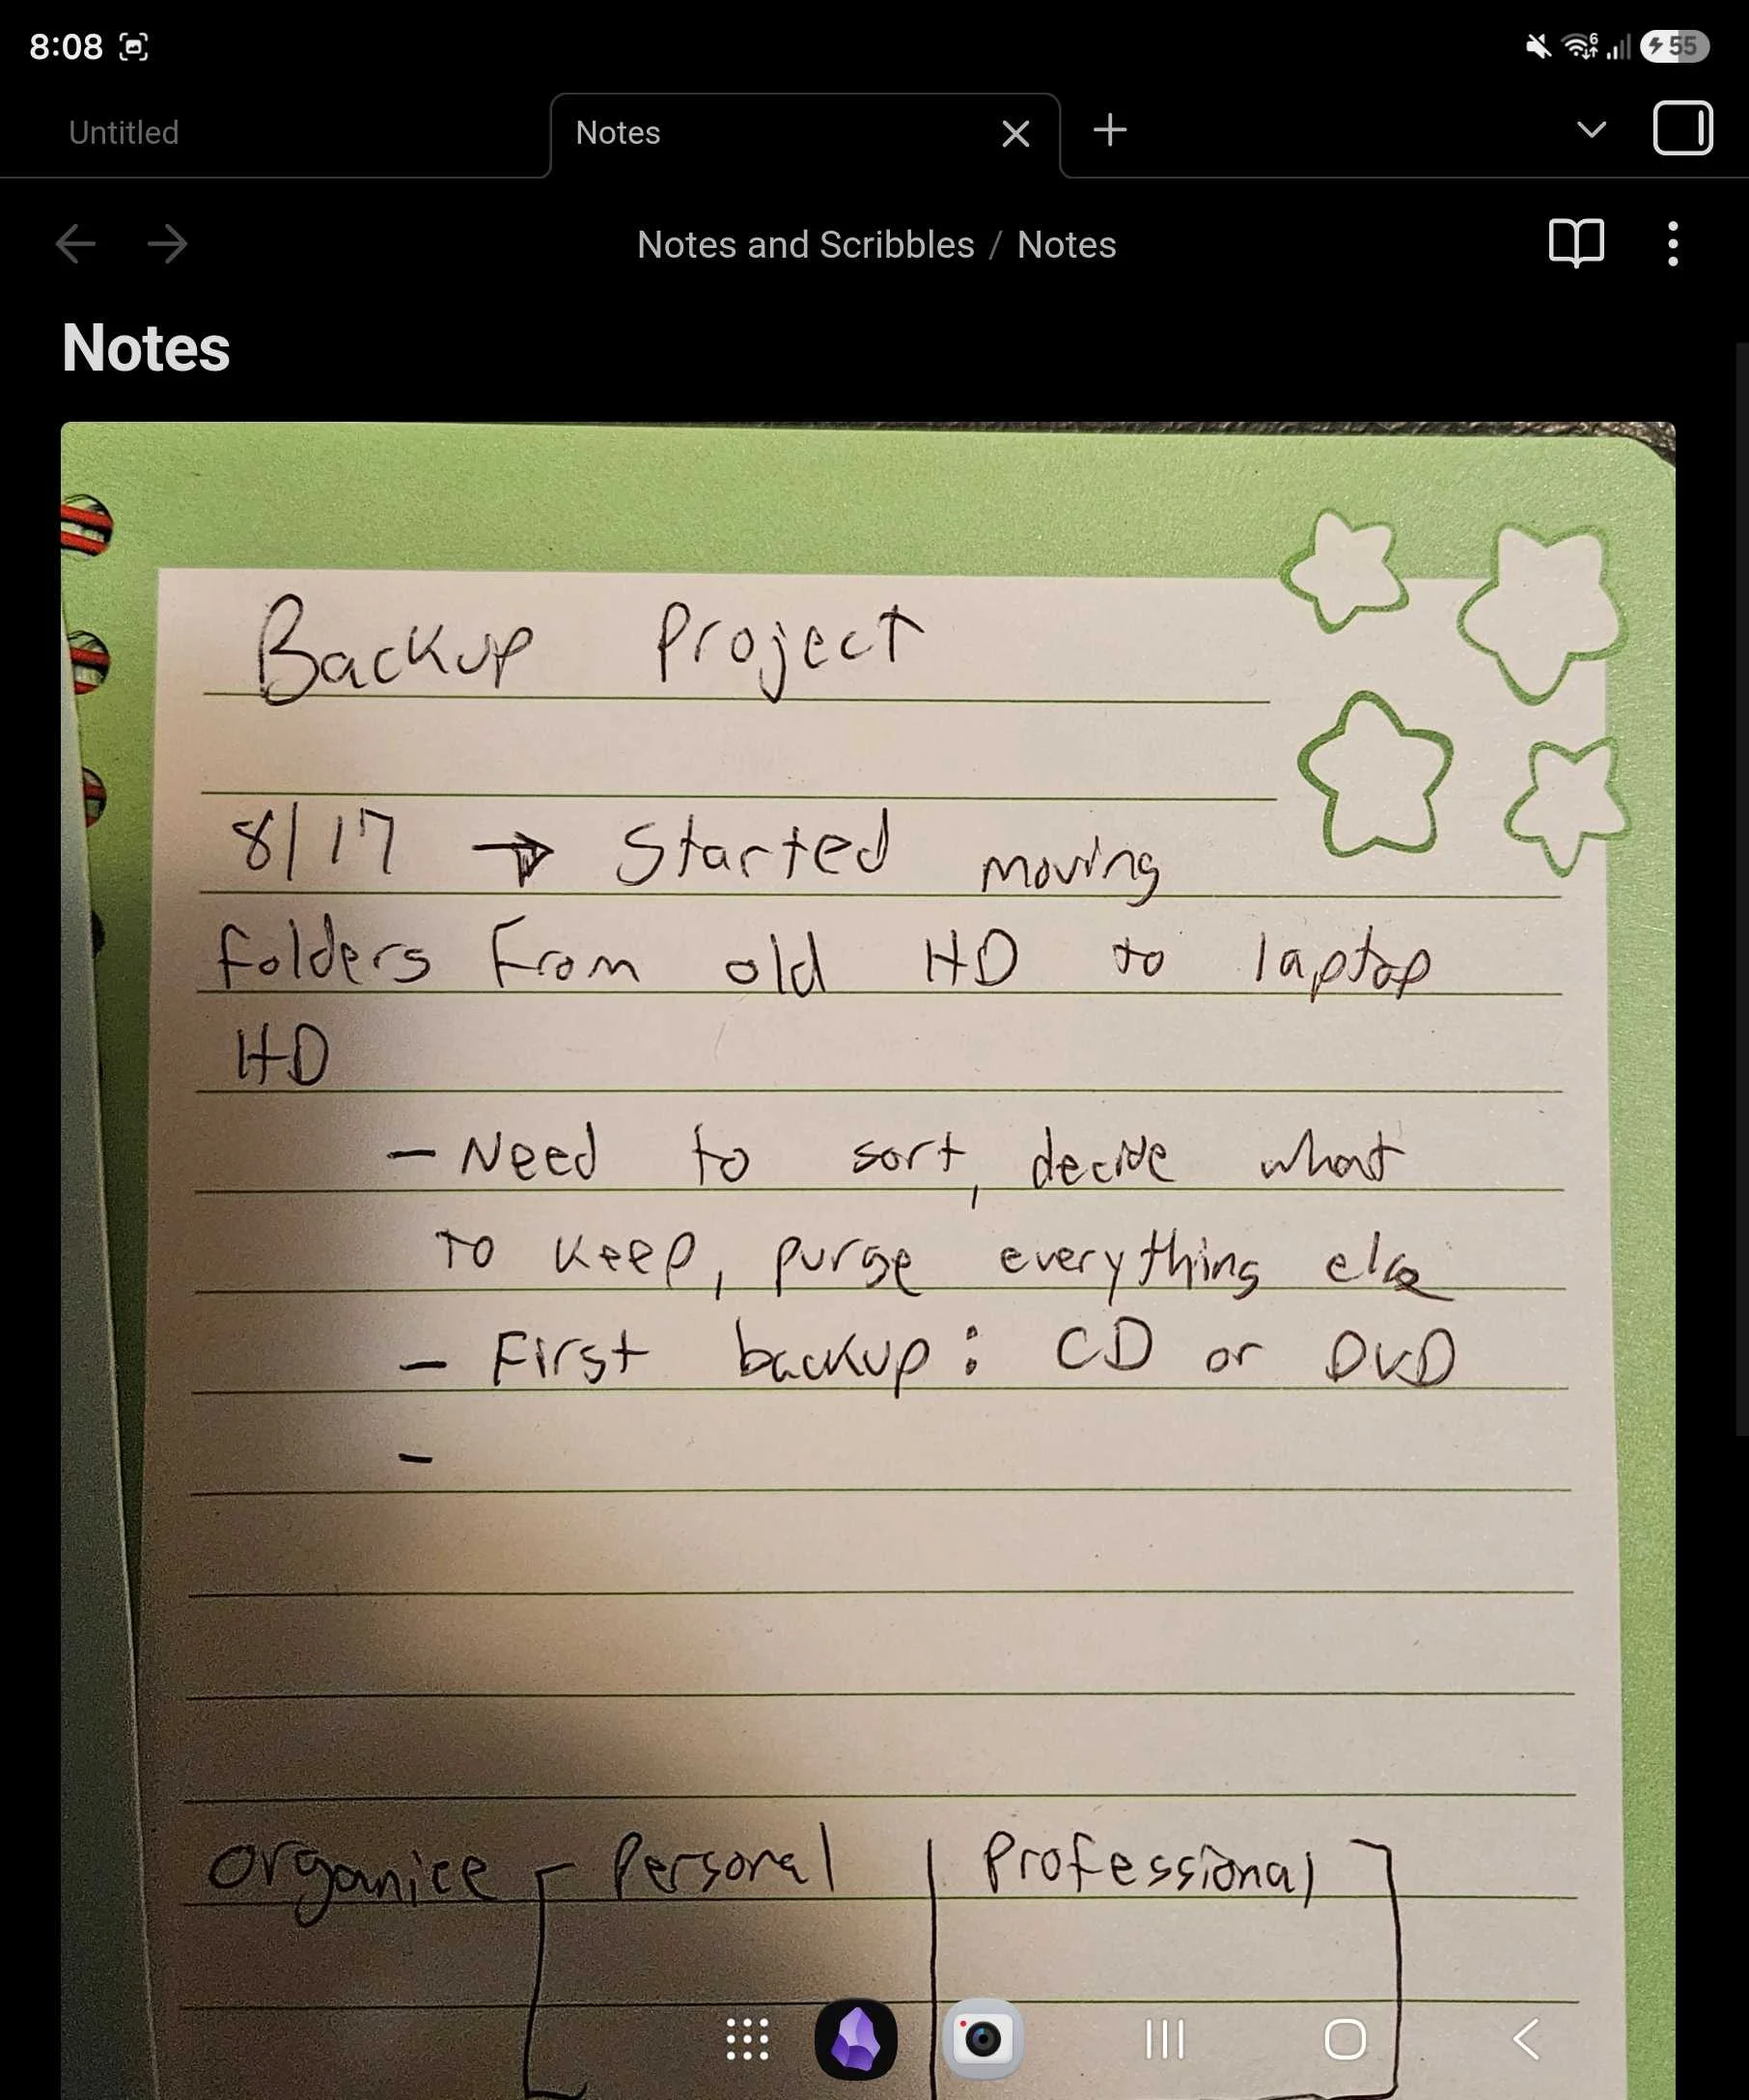 8:08
6
55
Untitled
Notes
Notes and Scribbles / Notes
Notes
Backup Project
8/17 → Started moving
folders From old HD to laptop
HD
- Need to sort, decide what
to keep, purge everything else
- First backup: CD or DVD
-
organice Personal | Professional